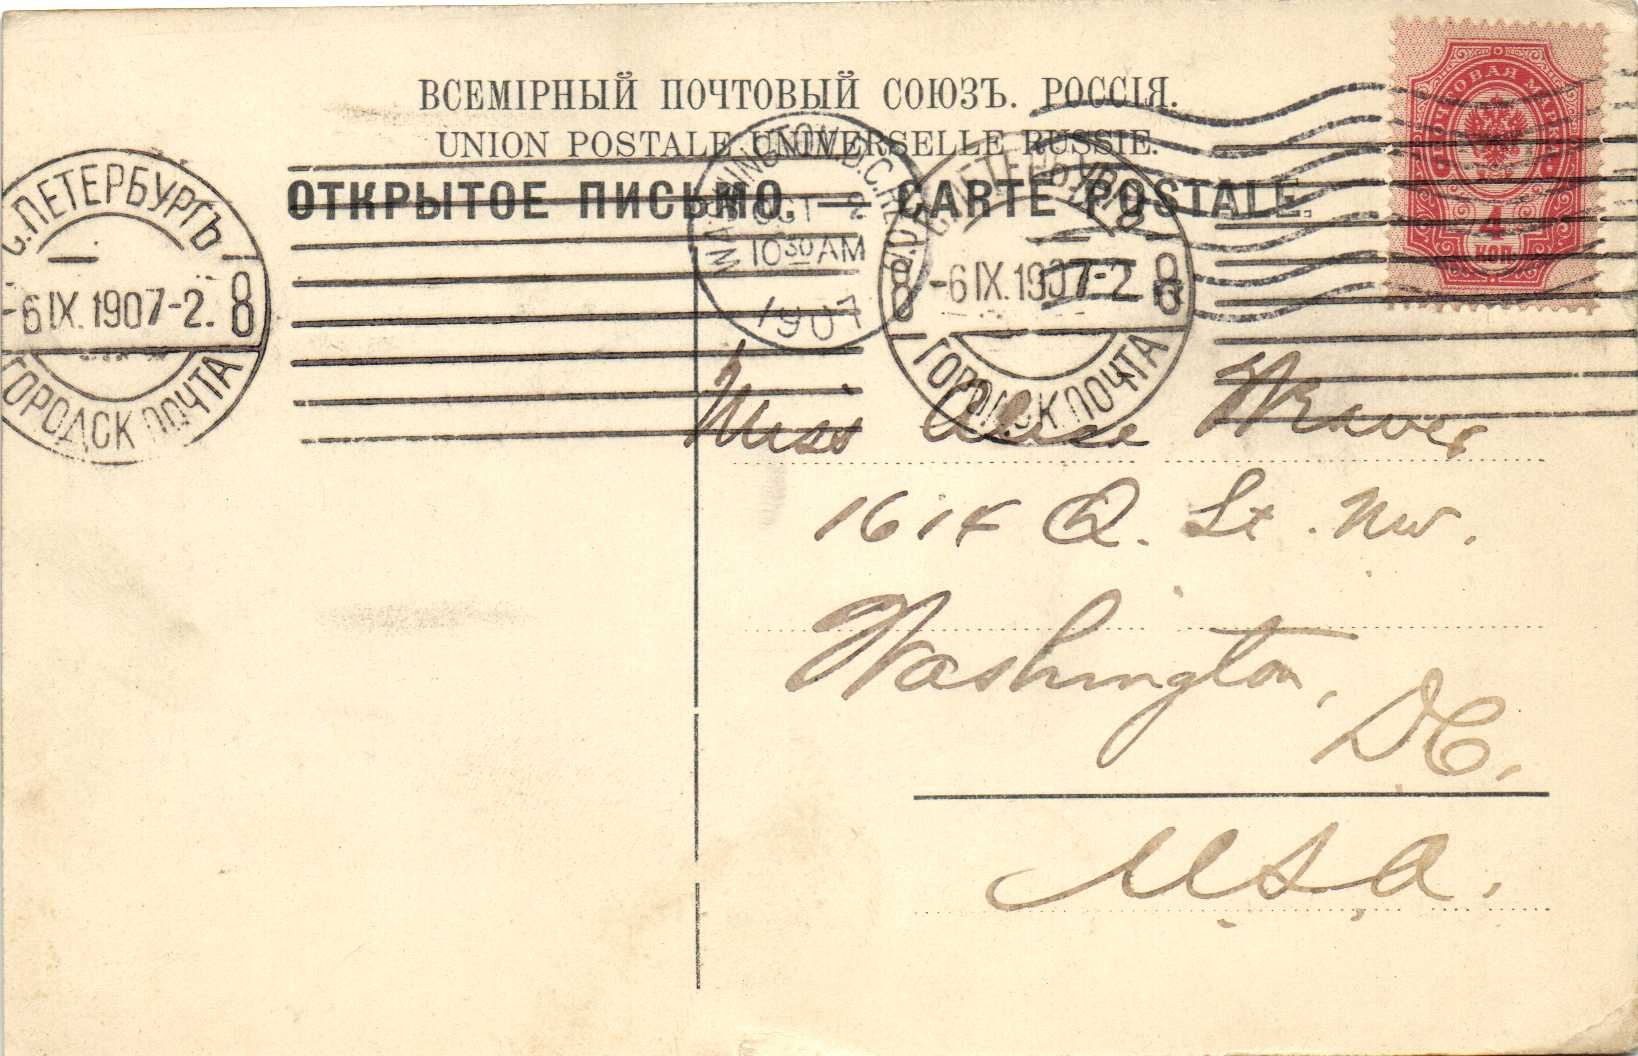 ВСЕМІРНЫЙ ПОЧТОВЫЙ СОЮЗЪ. РОССІЯ.
UNION POSTALE UNIVERSELLE RUSSIE.
ОТКРЫТОЕ ПИСЬМО — CARTE POSTALE.
ПОЧТОВАЯ МАРКА
4
КОП.
С.ПЕТЕРБУРГЪ
-6 IX.1907-2. 8
ГОРОДСК ПОЧТА
WASHINGTON, D.C. REC'D.
OCT 2
10 30 AM
1907
С.ПЕТЕРБУРГЪ
8 -6 IX.1907-2 8
ГОРОДСК ПОЧТА
Miss Alice Weaver
1614 Q. St. NW.
Washington, DC.
USA.